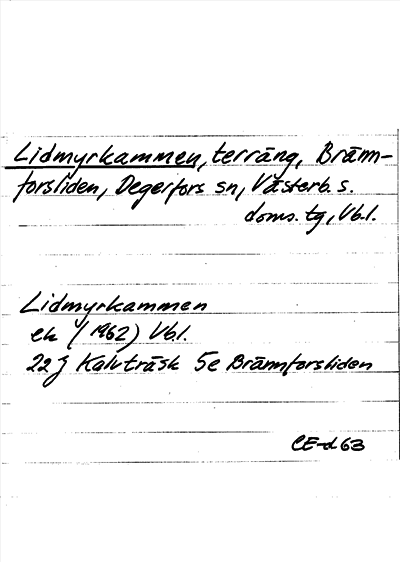 Lidmyrkammen, terräng, Bränn-
forsliden, Degerfors sn, Västerb. s.
doms. tg, Vb.l.
Lidmyrkammen
ek (1962) Vb.l.
22 J Kalvträsk 5e Brännforsliden
CE-d 63